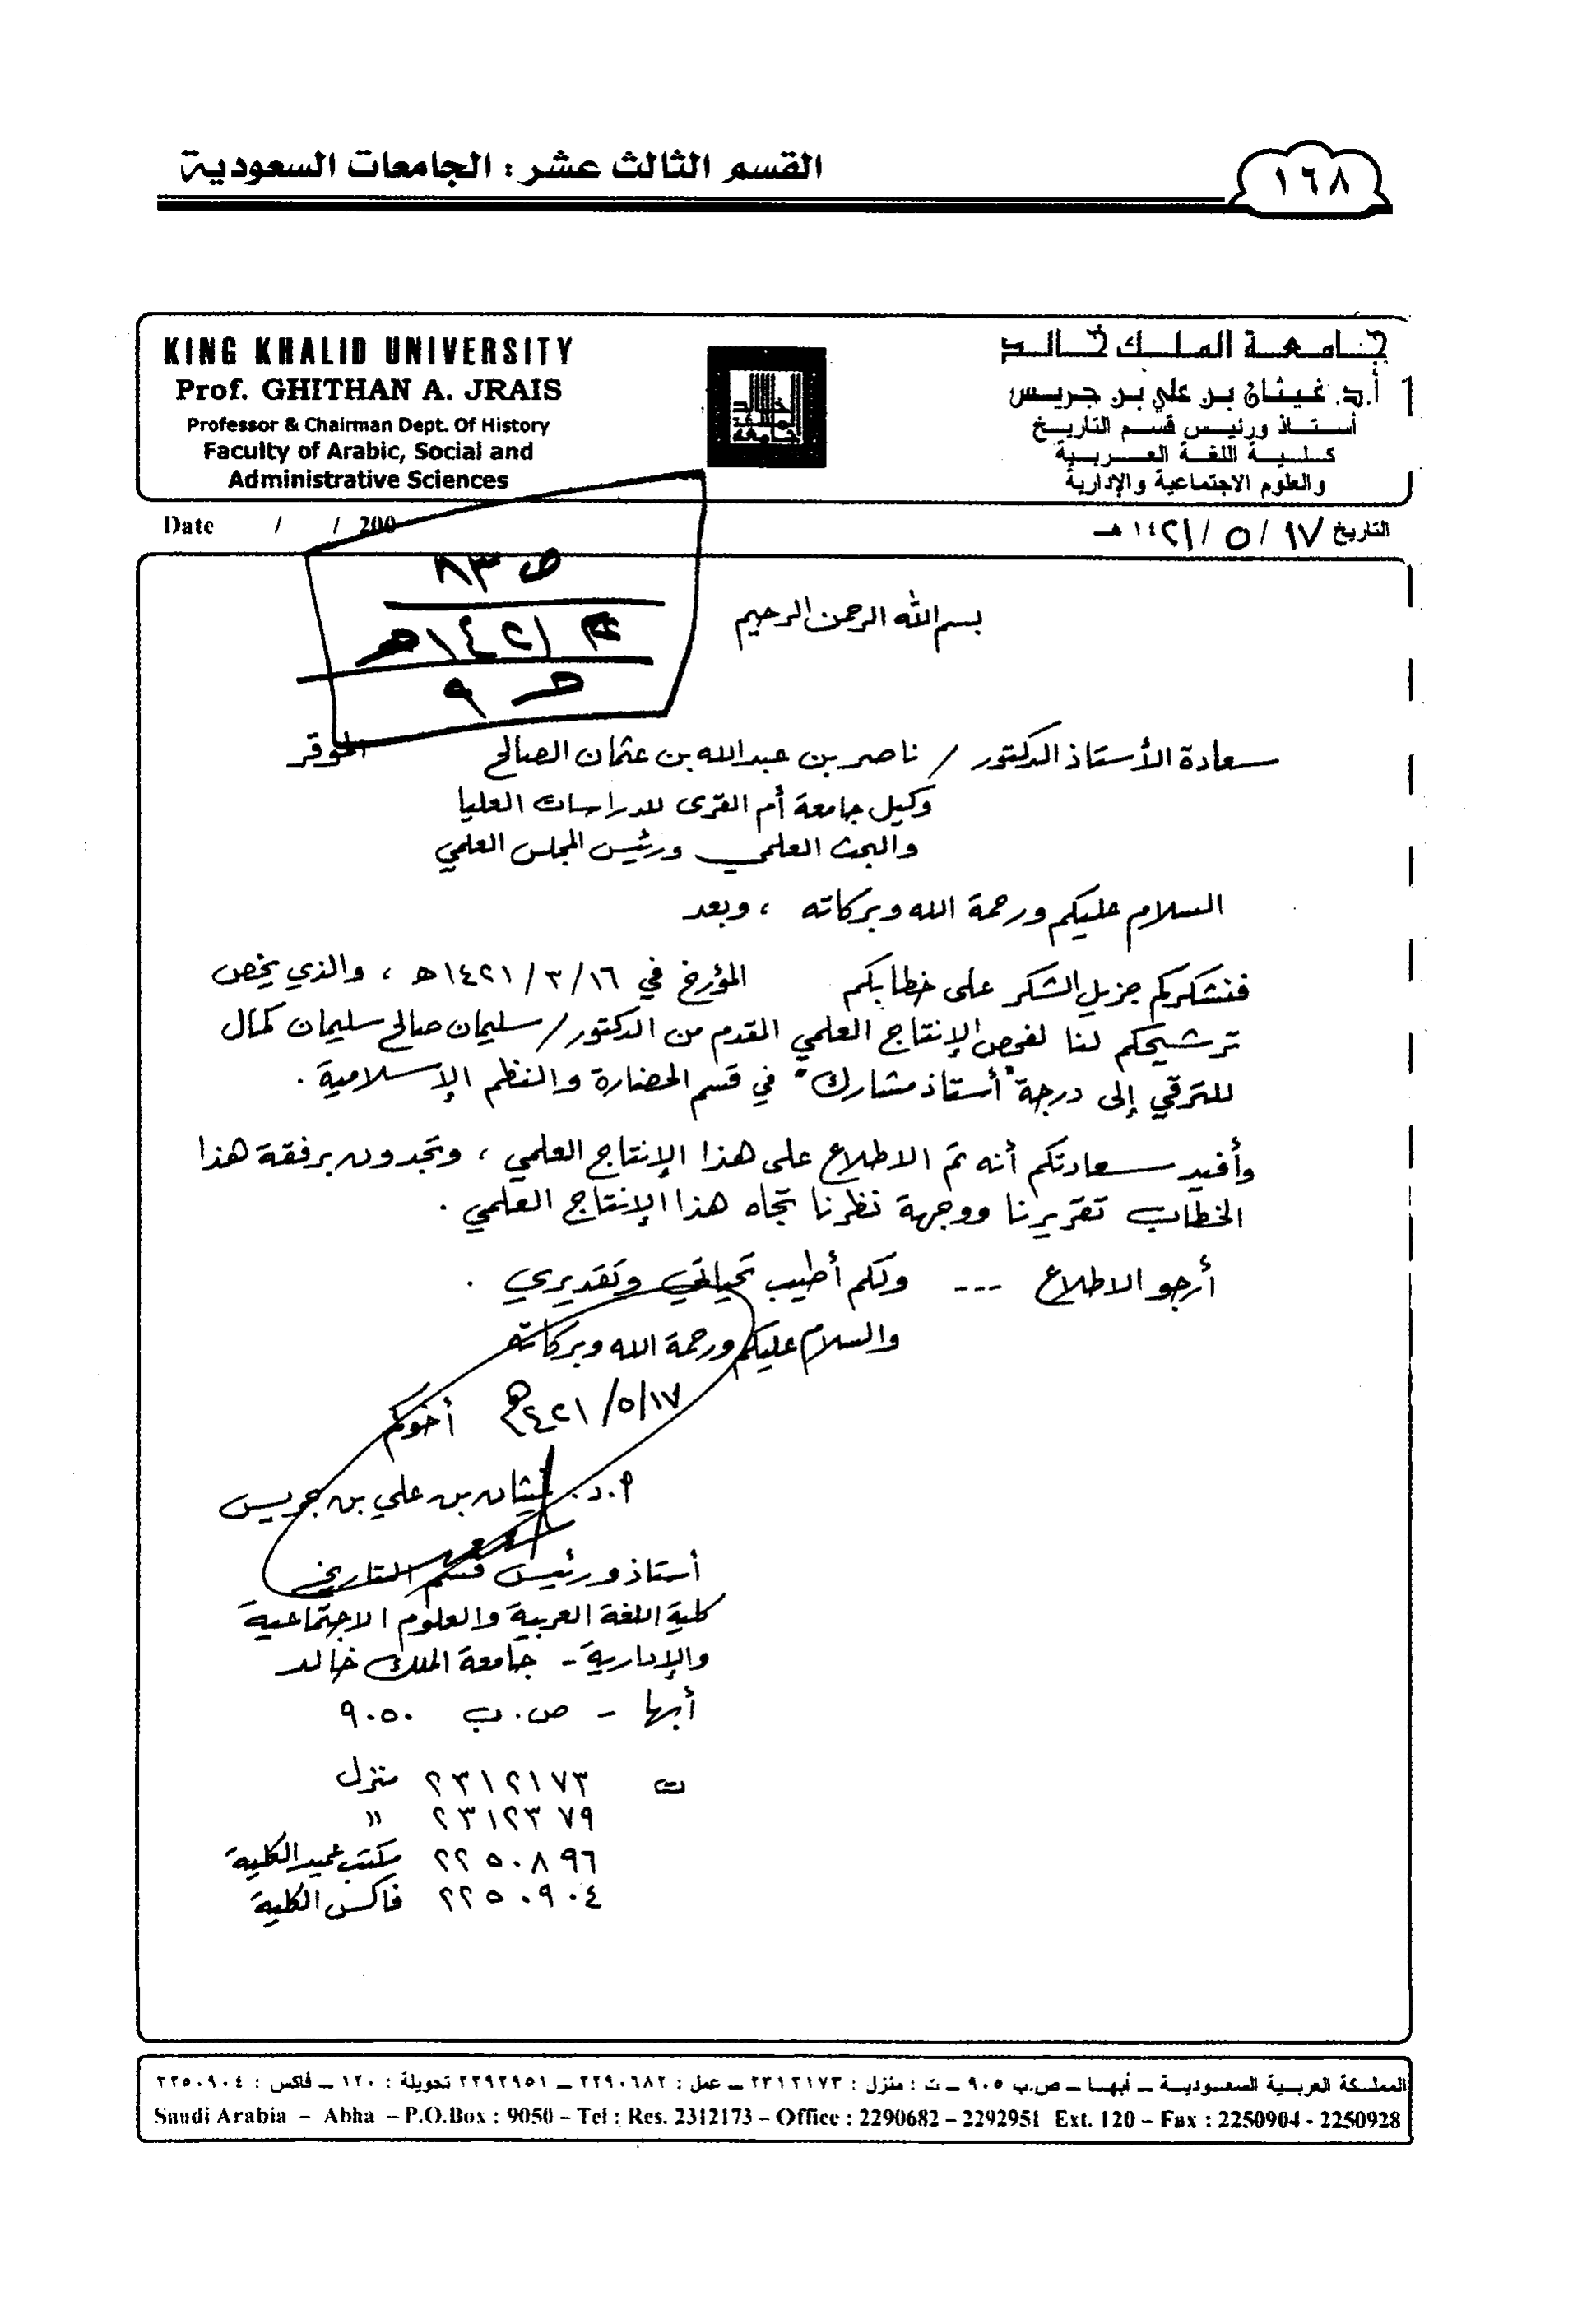 القسم الثالث عشر : الجامعات السعودية
١٦٨
KING KHALID UNIVERSITY
Prof. GHITHAN A. JRAIS
Professor & Chairman Dept. Of History
Faculty of Arabic, Social and
Administrative Sciences
جامعة الملك خالد
أ.د. غيثان بن علي بن جريس
أستاذ ورئيس قسم التاريخ
كلية اللغة العربية
والعلوم الاجتماعية والإدارية
Date / / 200
التاريخ ١٧ / ٥ / ١٤٢١ هـ
ص ٨٣
١٤٢١هـ
حـ ٩
بسم الله الرحمن الرحيم
سعادة الأستاذ الدكتور / ناصر بن عبدالله بن عثمان الصالح الموقر
وكيل جامعة أم القرى للدراسات العليا
والبحث العلمي ورئيس المجلس العلمي
السلام عليكم ورحمة الله وبركاته ، وبعد
فنشكركم جزيل الشكر على خطابكم المؤرخ في ١٦/٣/١٤٢١هـ ، والذي يخص
ترشيحكم لنا لفحص الإنتاج العلمي المقدم من الدكتور/ سليمان صالح سليمان كمال
للترقي إلى درجة "أستاذ مشارك" في قسم الحضارة والنظم الإسلامية .
وأفيد سعادتكم أنه تم الاطلاع على هذا الإنتاج العلمي ، وتجدون برفقة هذا
الخطاب تقريرنا ووجهة نظرنا تجاه هذا الإنتاج العلمي .
أرجو الاطلاع --- ولكم أطيب تحياتي وتقديري .
والسلام عليكم ورحمة الله وبركاته
١٧/٥/١٤٢١هـ أخوكم
أ.د. غيثان بن علي بن جريس
أستاذ ورئيس قسم التاريخ
كلية اللغة العربية والعلوم الاجتماعية
والإدارية - جامعة الملك خالد
أبها - ص.ب ٩٠٥٠
ت ٢٣١٢١٧٣ منزل
٢٣١٢٣٧٩ "
٢٢٥٠٨٩٦ مكتب عميد الكلية
٢٢٥٠٩٠٤ فاكس الكلية
المملكة العربية السعودية ــ أبها ــ ص.ب ٩٠٥ ــ ت : منزل : ٢٣١٢١٧٣ ــ عمل : ٢٢٩٠٦٨٢ ــ ٢٢٩٢٩٥١ تحويلة : ١٢٠ ــ فاكس : ٢٢٥٠٩٠٤
Saudi Arabia – Abha – P.O.Box : 9050 – Tel : Res. 2312173 – Office : 2290682 – 2292951 Ext. 120 – Fax : 2250904 - 2250928